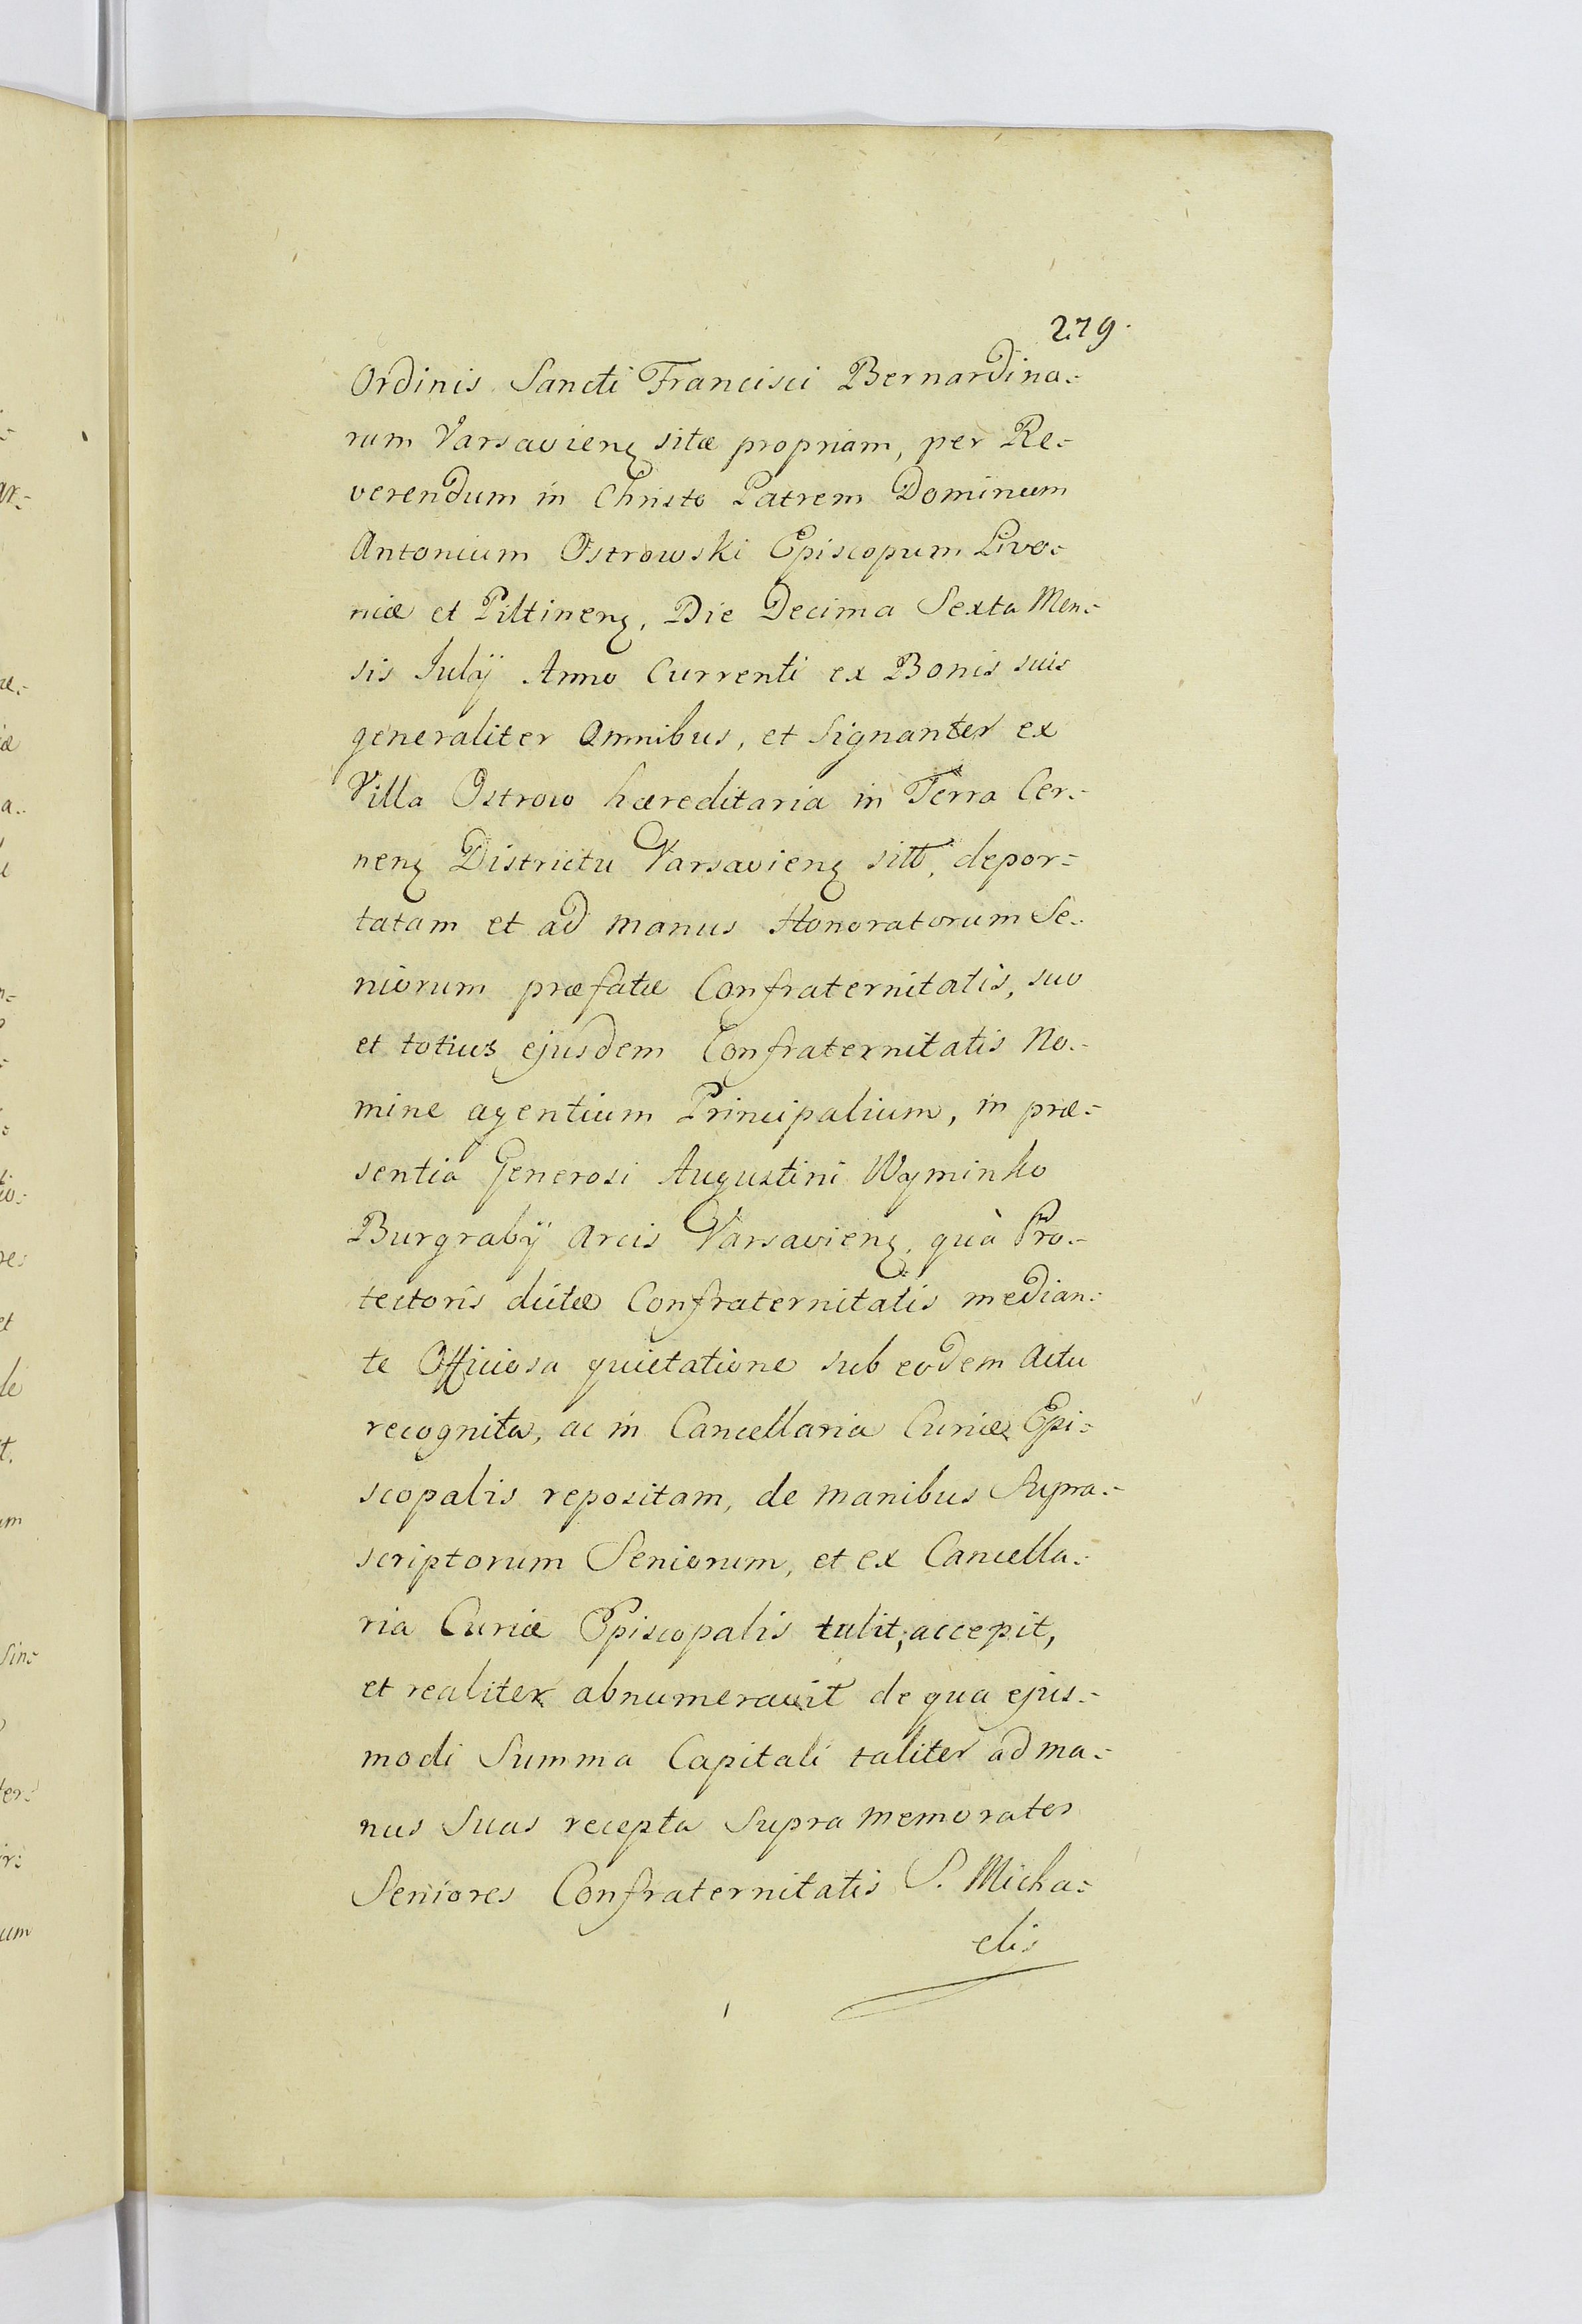 279.
Ordinis Sancti Francisci Bernardina=
rum Varsavienꝫ sitæ propriam, per Re=
verendum in Christo Patrem Dominum
Antonium Ostrowski Episcopum Livo=
niæ et Piltinenꝫ, Die Decima Sexta Men=
sis Julÿ Anno Currenti ex Bonis suis
generaliter Omnibus, et Signanter ex
Villa Ostrow hæreditaria in Terra Cer=
nenꝫ Districtu Varsavienꝫ sitt, depor=
tatam et ad manus Honoratorum Se=
niorum præfatæ Confraternitatis, suo
et totius ejusdem Confraternitatis No=
mine agentium Principalium, in præ=
sentia Generosi Augustini Wyminko
Burgrabÿ Arcis Varsavienꝫ, quà Pro=
tectoris dictæ Confraternitatis median=
te Officiosa quietatione sub eodem Actu
recognita, ac in Cancellaria Curiæ Epi=
scopalis repositam, de manibus Supra=
scriptorum Seniorum, et ex Cancella=
ria Curiæ Episcopalis tulit, accepit,
et realiter abnumeravit de qua ejus=
modi Summa Capitali taliter ad ma=
nus Suas recepta Supra memorates
Seniores Confraternitatis S. Micha=
elis